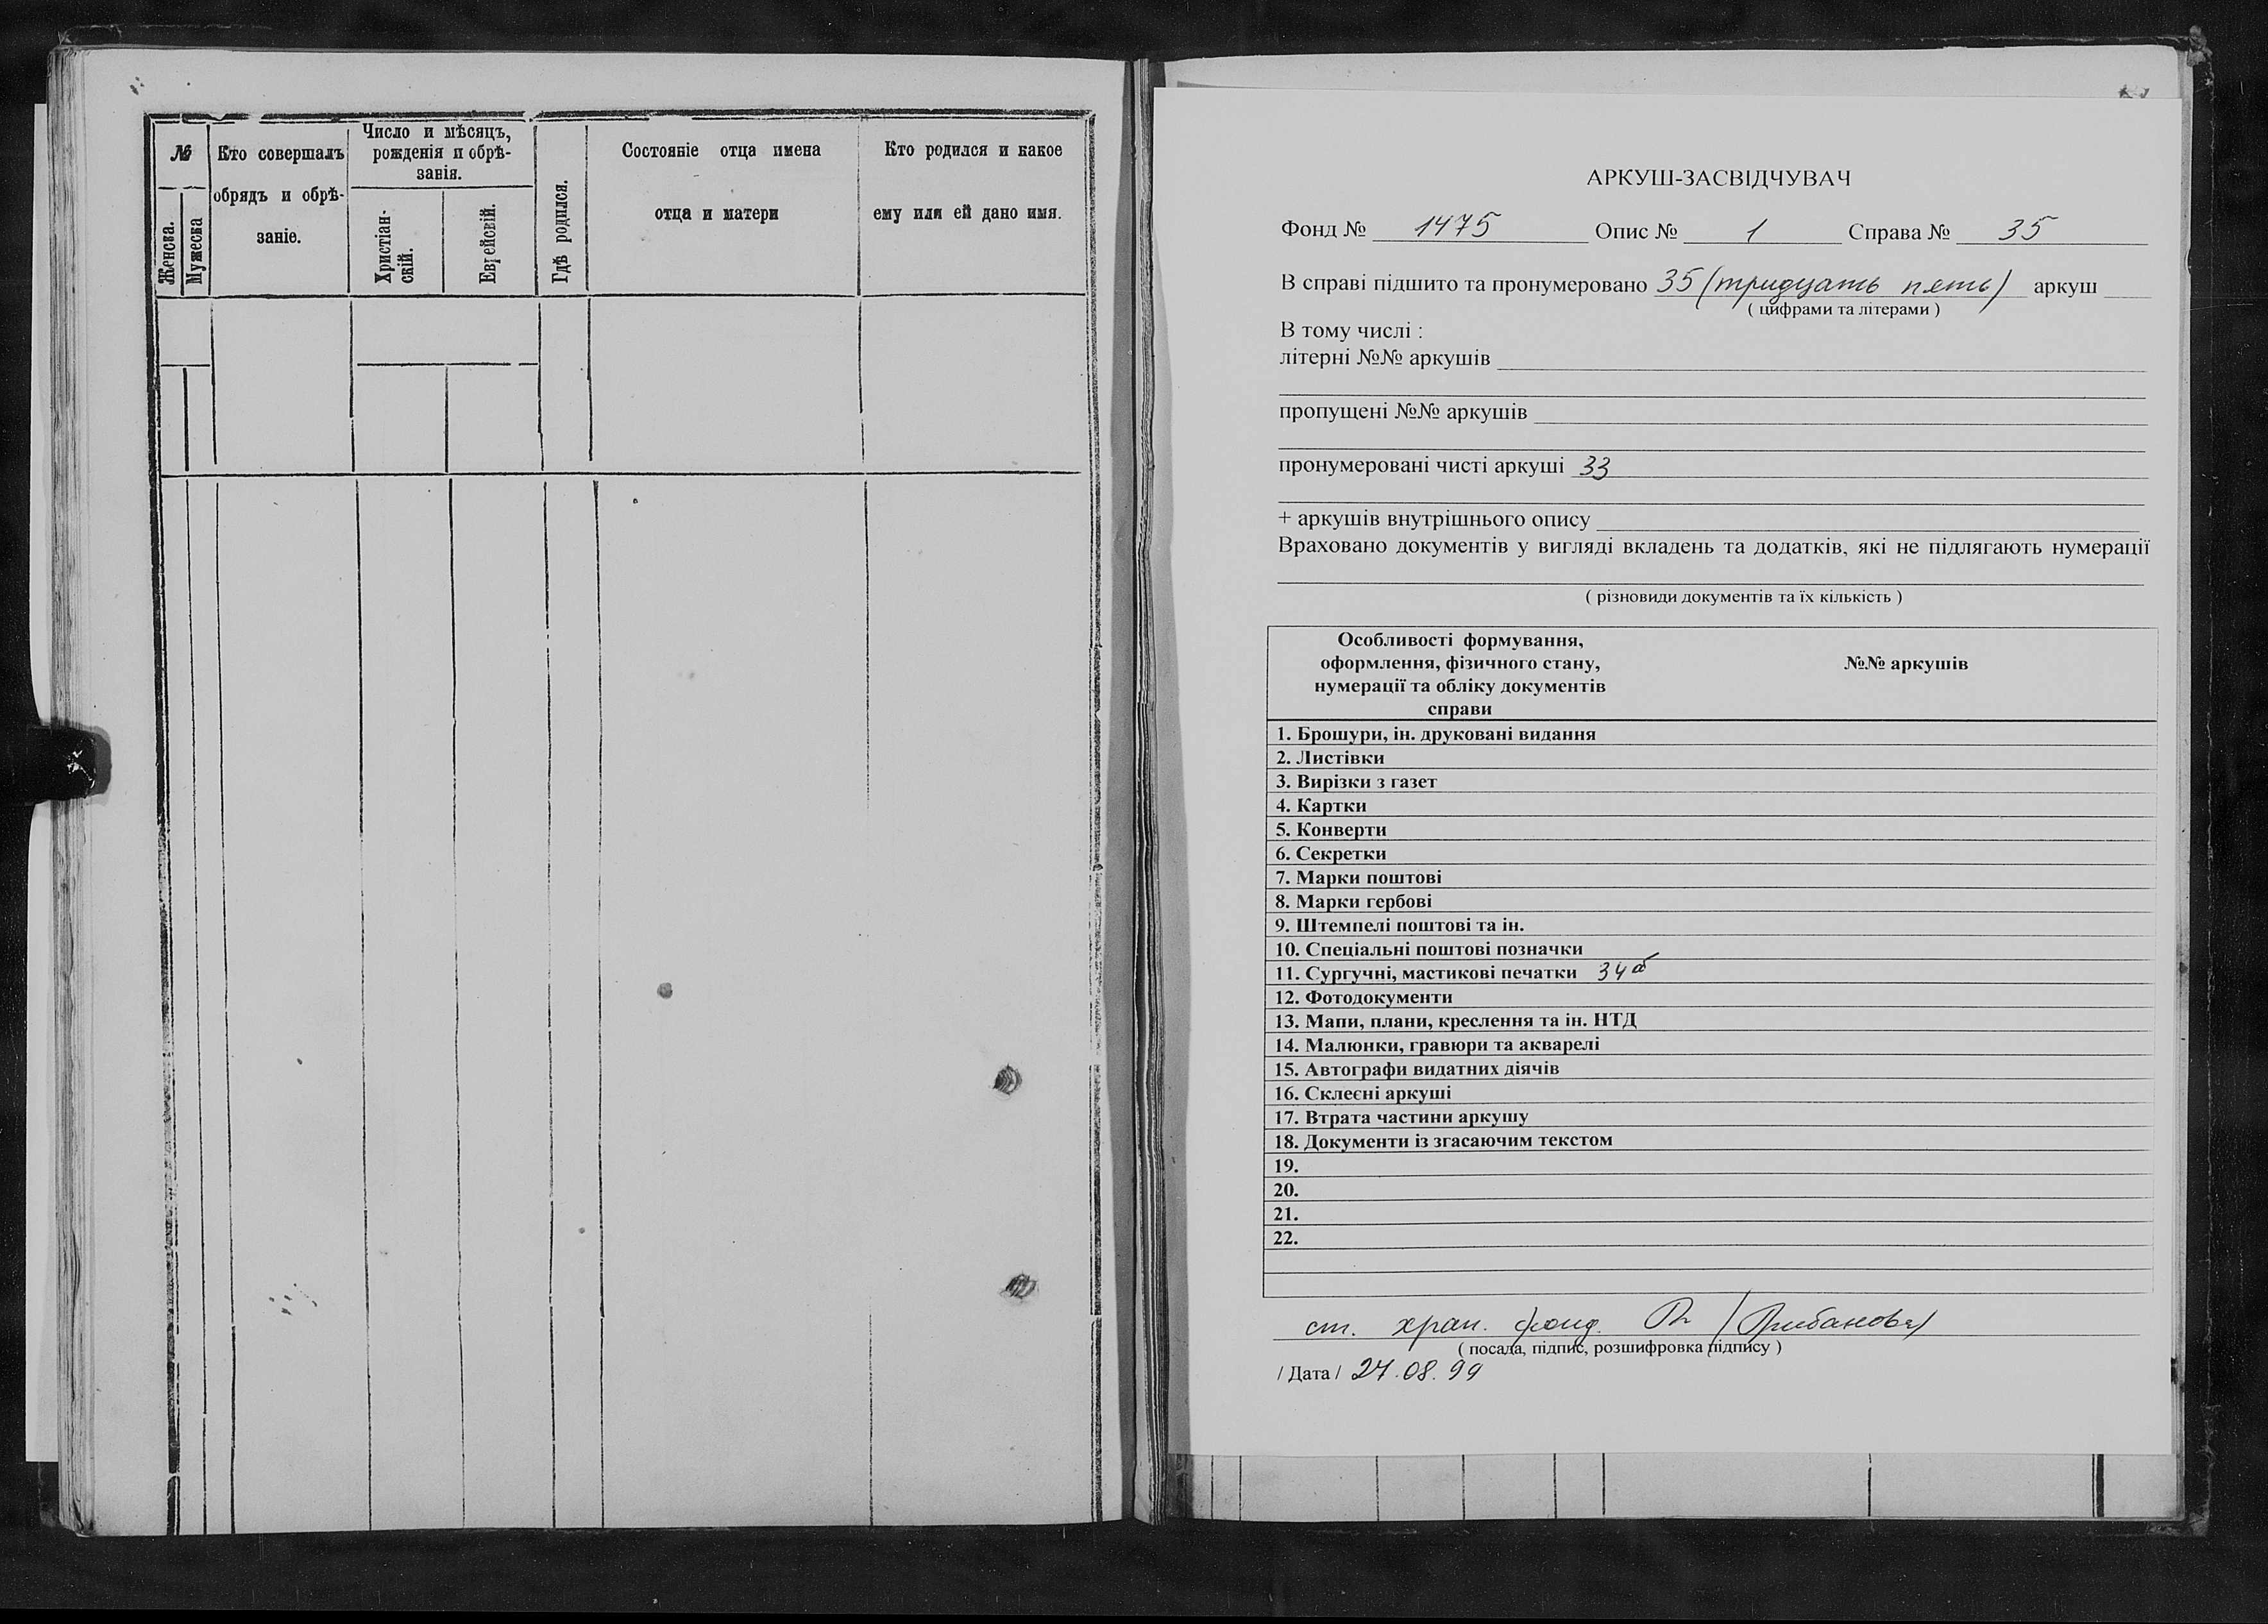 №
Женска.
Мужеска
Кто совершалъ
обрядъ и обрѣ-
заніе.
Число и мѣсяцъ,
рожденія и обрѣ-
занія.
Христіан-
скій.
Еврейскій.
Гдѣ родился.
Состояніе отца имена
отца и матери
Кто родился и какое
ему или ей дано имя.
АРКУШ-ЗАСВІДЧУВАЧ
Фонд № 1475 Опис № 1 Справа № 35
В справі підшито та пронумеровано 35 (тридцать пять) аркуш
( цифрами та літерами )
В тому числі :
літерні №№ аркушів
пропущені №№ аркушів
пронумеровані чисті аркуші 33
+ аркушів внутрішнього опису
Враховано документів у вигляді вкладень та додатків, які не підлягають нумерації
( різновиди документів та їх кількість )
Особливості формування,
оформлення, фізичного стану,
нумерації та обліку документів
справи
№№ аркушів
1. Брошури, ін. друковані видання
2. Листівки
3. Вирізки з газет
4. Картки
5. Конверти
6. Секретки
7. Марки поштові
8. Марки гербові
9. Штемпелі поштові та ін.
10. Спеціальні поштові позначки
11. Сургучні, мастикові печатки 34
12. Фотодокументи
13. Мапи, плани, креслення та ін. НТД
14. Малюнки, гравюри та акварелі
15. Автографи видатних діячів
16. Склеєні аркуші
17. Втрата частини аркушу
18. Документи із згасаючим текстом
19.
20.
21.
22.
ст. хран. фонд.
( посада, підпис, розшифровка підпису )
/ Дата / 27.08.99